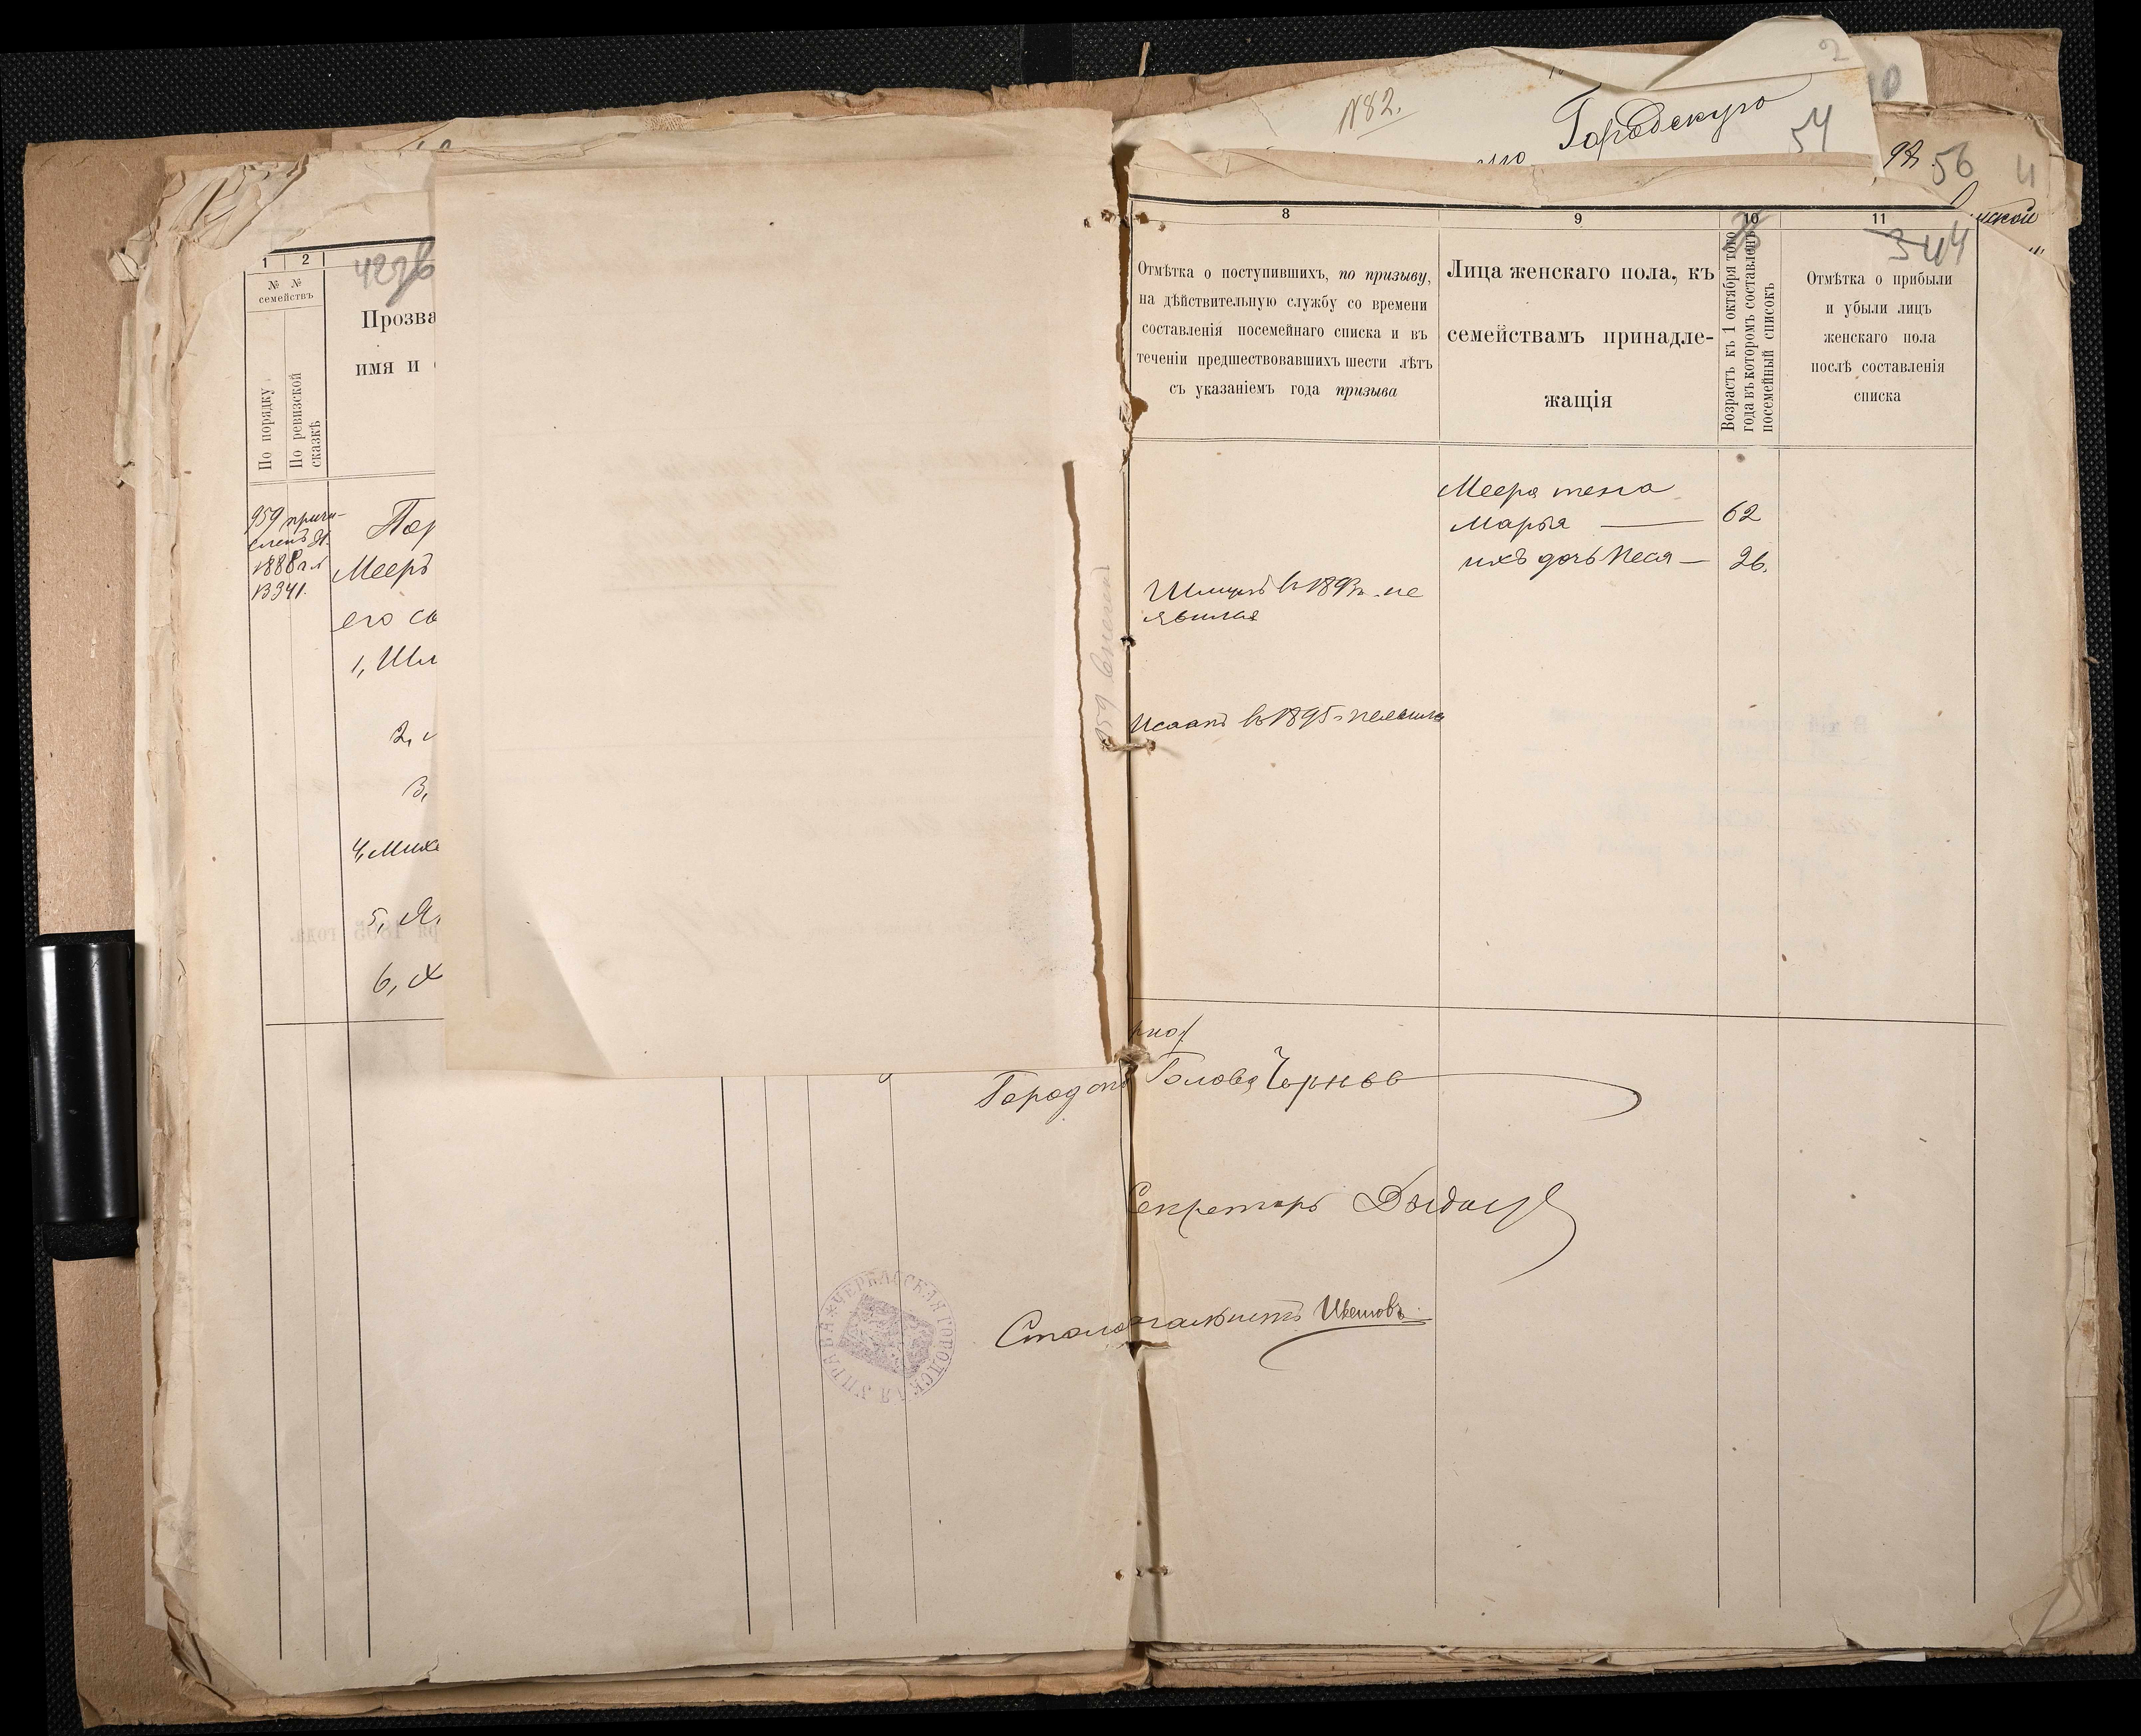 N82.
Городскую
2
10
54
92
56
4
нской
1
2
№ №
семействъ
По порядку
По ревизской
сказкѣ
Прозва
имя и
959 причи-
сленъ
1888
Пор
Мееръ
его сы
1, Шл
2,
3,
4, Михе
5, Я
6, Х
8
Отмѣтка о поступившихъ, по призыву,
на дѣйствительную службу со времени
составленія посемейнаго списка и въ
теченіи предшествовавшихъ шести лѣтъ
съ указаніемъ года призыва
9
Лица женскаго пола, къ
семействамъ принадле-
жащія
10
Возрастъ къ 1 октября того
года въ которомъ составленъ
посемейный списокъ
11
344
Отмѣтка о прибыли
и убыли лицъ
женскаго пола
послѣ составленія
списка
Меера жена
Марья — 62
ихъ дочь Песя — 26.
въ 1893 г. не
явился
Исаакъ въ 1895 г. неявился
Город Голова Чернов
Секретарь
Столоначальникъ
ЧЕРКАССКАЯ ГОРОДСКАЯ УПРАВА